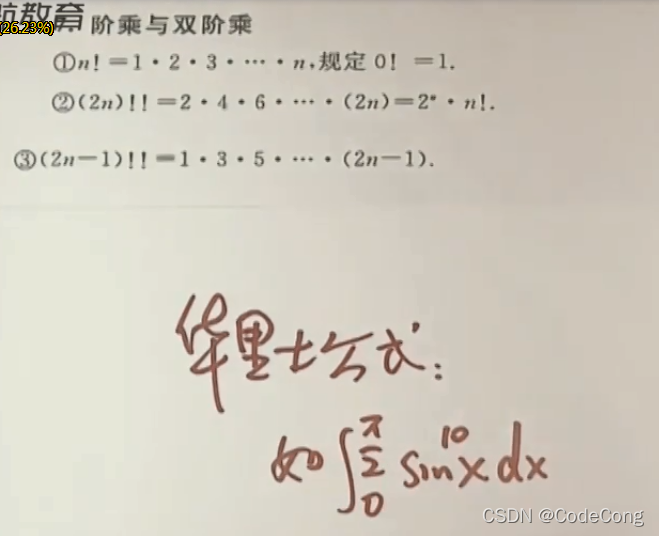 航教育
(26.23%)
阶乘与双阶乘
①n!=1·2·3·…·n,规定 0! =1.
②(2n)!!=2·4·6·…·(2n)=2ⁿ·n!.
③(2n-1)!!=1·3·5·…·(2n-1).
华里士公式:
如 ∫₀^(π/2) sin¹⁰x dx
CSDN @CodeCong